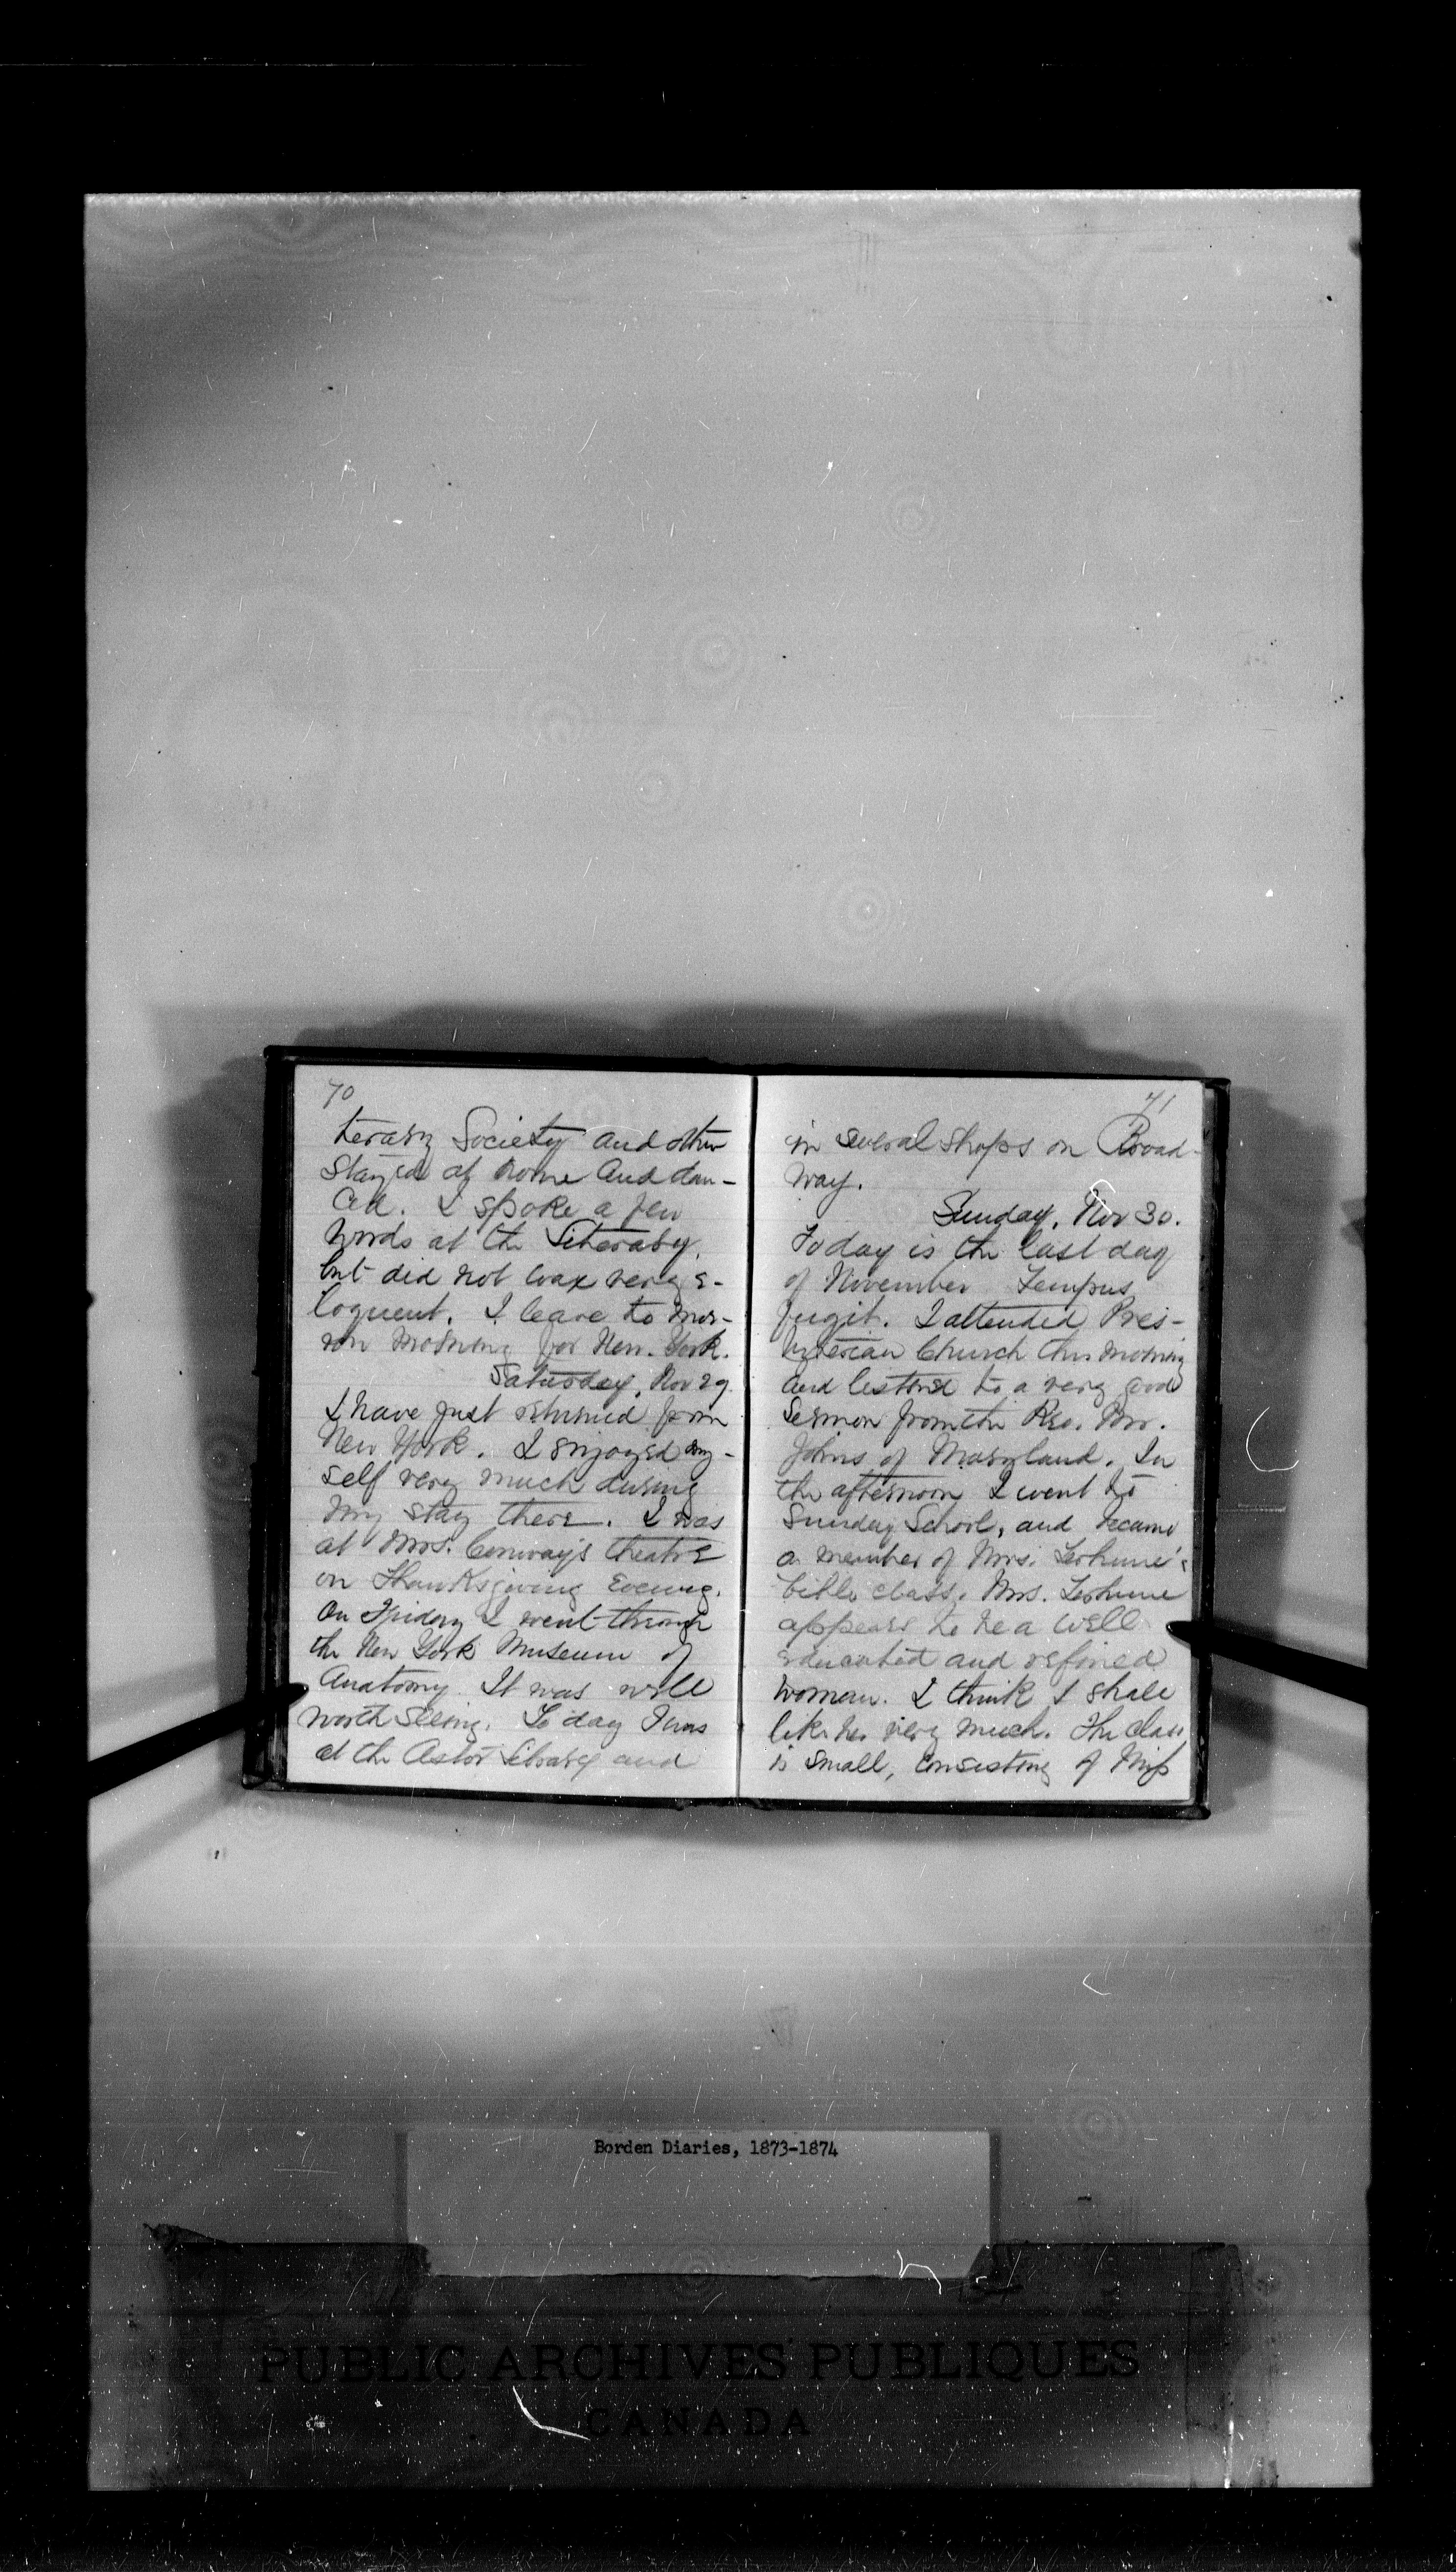 70
terary Society and other
stayed at home and dan-
ced. I spoke a few
words at the Literary,
but did not wax very e-
loquent. I leave to mor-
row morning for New York.
Saturday, Nov 29
I have just returned from
New York. I enjoyed my-
self very much during
my stay there. I was
at Mrs. Conway's theatre
on Thanksgiving Evening.
On Friday I went through
the New York Museum of
Anatomy. It was well
worth seeing. To day I was
at the Astor Library and
71
in several shops on Broad-
way.
Sunday, Nov 30.
Today is the last day
of November Tempus
fugit. I attended Pres-
byterian Church this morning
and listened to a very good
Sermon from the Rev. Mr.
Johns of Maryland. In
the afternoon I went to
Sunday School, and became
a member of Mrs.
bible class. Mrs.
appears to be a well
educated and refined
woman. I think I shall
like her very much. The class
is small, consisting of Miss
Borden Diaries, 1873-1874
PUBLIC ARCHIVES PUBLIQUES
CANADA